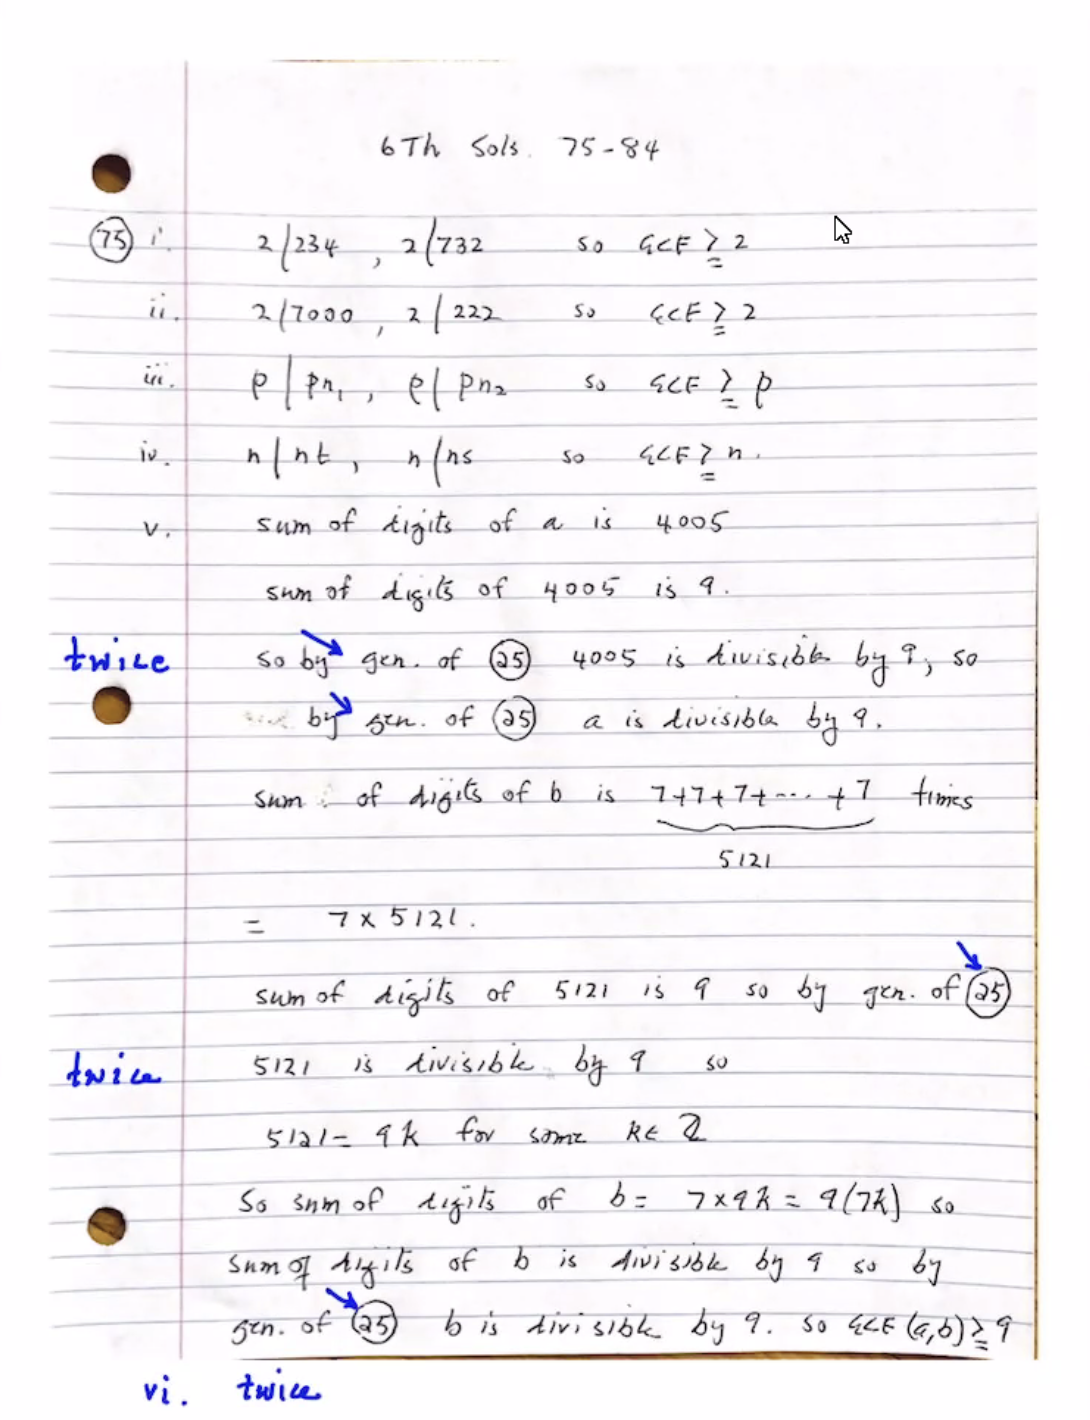 6Th Sols. 75-84
(75) i. 2/234, 2/732 so GCF ≧ 2
ii. 2/7000, 2/222 so GCF ≧ 2
iii. p/pn₁, p/pn₂ so GCF ≧ p
iv. n/nt, n/ns so GCF ≧ n.
v. sum of digits of a is 4005
sum of digits of 4005 is 9.
twice so by gen. of (25) 4005 is divisible by 9, so
by gen. of (25) a is divisible by 9.
sum of digits of b is 7+7+7+...+7 times
5121
= 7 x 5121.
sum of digits of 5121 is 9 so by gen. of (25)
twice 5121 is divisible by 9 so
5121 = 9k for some k∈ℤ
So sum of digits of b = 7x9k = 9(7k) so
sum of digits of b is divisible by 9 so by
gen. of (25) b is divisible by 9. so GCF (a,b) ≧ 9
vi. twice